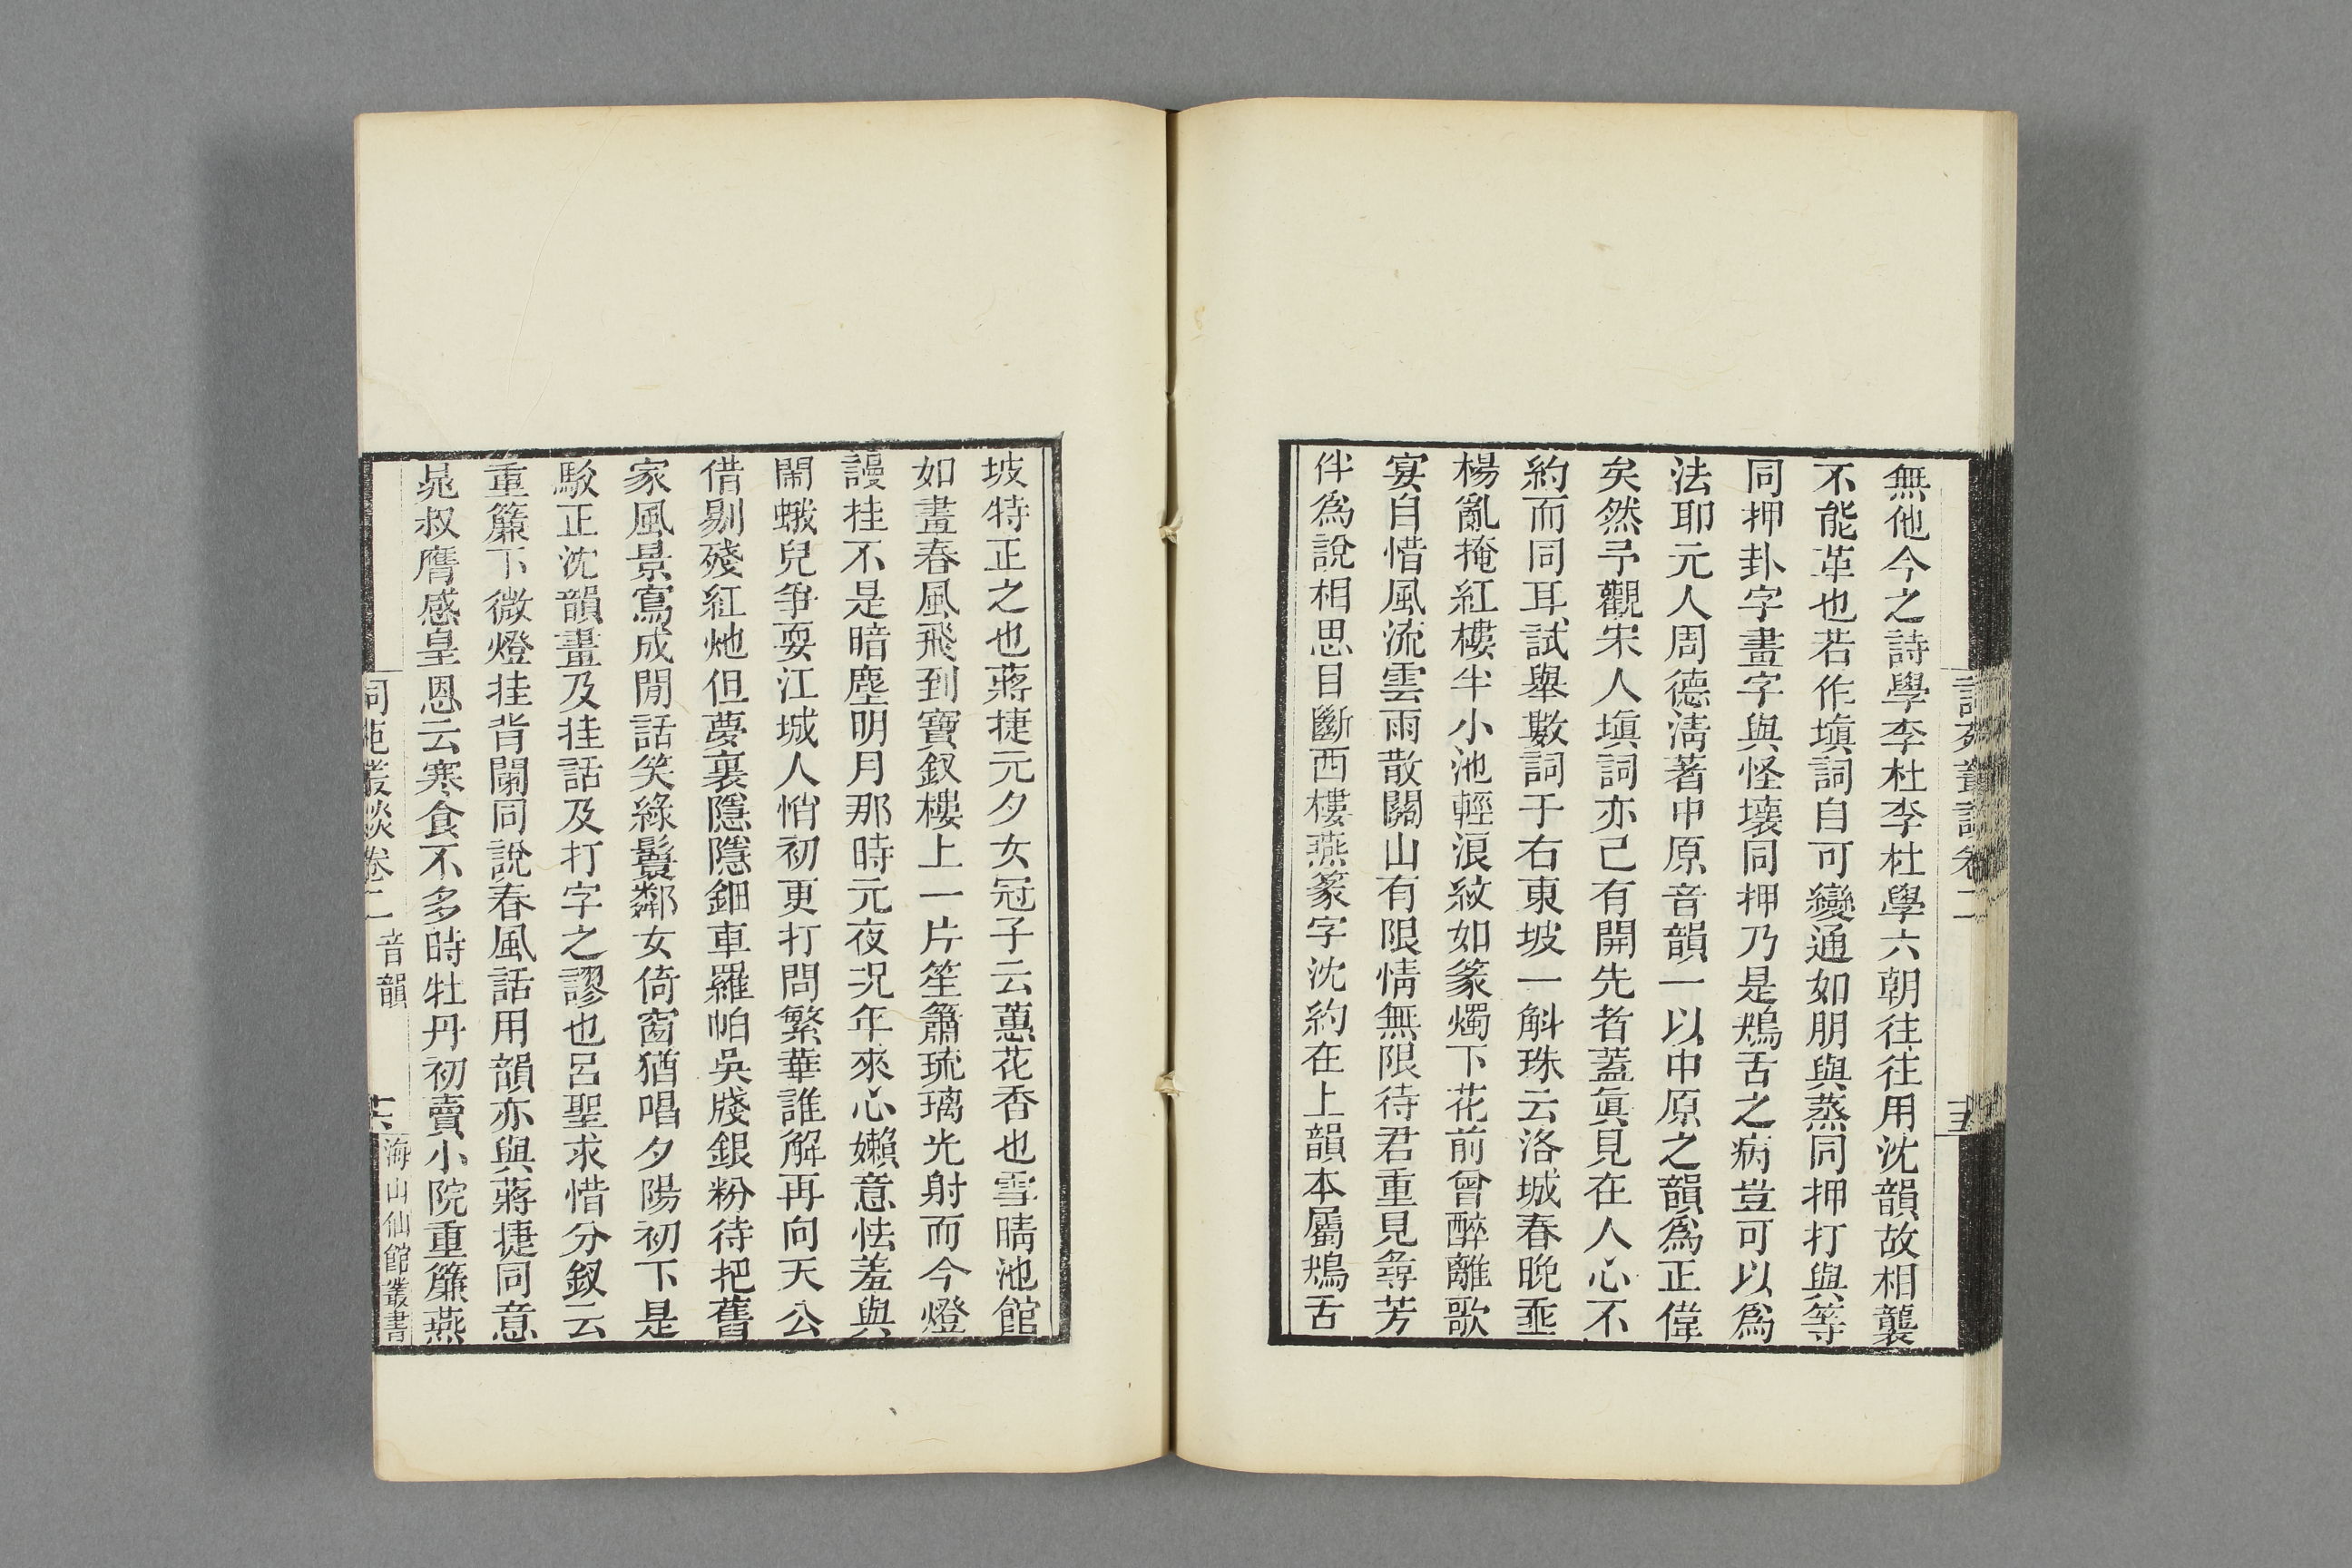 無他今之詩學李杜李杜學六朝往往用沈韻故相襲
不能革也若作塡詞自可變通如朋與蒸同押打與等
同押卦字畫字與怪壞同押乃是鴂舌之病豈可以爲
法耶元人周德淸著中原音韻一以中原之韻爲正偉
矣然予觀宋人塡詞亦已有開先者蓋眞見在人心不
約而同耳試舉數詞于右東坡一斛珠云洛城春晚垂
楊亂掩紅樓半小池輕浪紋如篆燭下花前曾醉離歌
宴自惜風流雲雨散關山有限情無限待君重見尋芳
伴爲說相思目斷西樓燕篆字沈約在上韻本屬鴂舌
詞苑叢談卷二
十五
坡特正之也蔣捷元夕女冠子云蕙花香也雪晴池館
如畫春風飛到寶釵樓上一片笙簫琉璃光射而今燈
謾挂不是暗塵明月那時元夜况年來心嬾意怯羞與
鬧蛾兒爭耍江城人悄初更打問繁華誰解再向天公
借剔殘紅灺但夢裏隱隱鈿車羅帕吳牋銀粉待把舊
家風景寫成閒話笑綠鬟鄰女倚窗猶唱夕陽初下是
駮正沈韻畫及挂話及打字之謬也呂聖求惜分釵云
重簾下微燈挂背闌同說春風話用韻亦與蔣捷同意
晁叔膺感皇恩云寒食不多時牡丹初賣小院重簾燕
詞苑叢談卷二 音韻
十六
海山仙館叢書